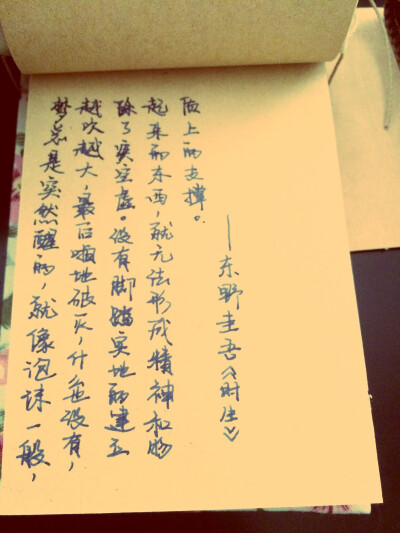 梦总是突然醒的，就像泡沫一般，
越吹越大，最后啪地破灭，什么也没有，
除了突空虚。没有脚踏实地的建立
起来的东西，就无法形成精神和物
质上的支撑。
——东野圭吾《时生》